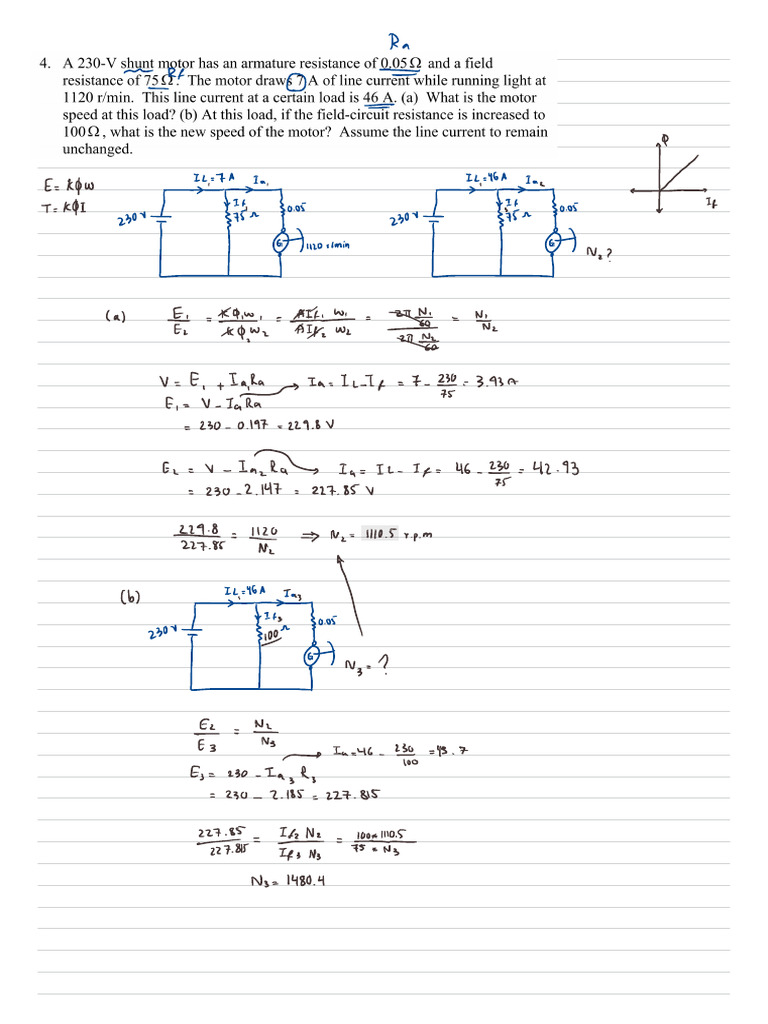 Ra
4. A 230-V shunt motor has an armature resistance of 0.05 Ω and a field
resistance of 75 Ω. Rf The motor draws 7 A of line current while running light at
1120 r/min. This line current at a certain load is 46 A. (a) What is the motor
speed at this load? (b) At this load, if the field-circuit resistance is increased to
100 Ω, what is the new speed of the motor? Assume the line current to remain
unchanged.
E = kϕω
T = kϕI
IL₁ = 7 A Ia₁
If₁
75 Ω
0.05
230 V
G
1120 r/min
IL₁ = 46 A Ia₂
If₂
75 Ω
0.05
230 V
G
N₂?
φ
If
(a) E₁/E₂ = Kϕ₁ω₁/Kϕ₂ω₂ = AIf₁ ω₁/AIf₂ ω₂ = 2π N₁/60 / 2π N₂/60 = N₁/N₂
V = E₁ + Ia₁Ra → Ia = IL - If = 7 - 230/75 = 3.93 A
E₁ = V - IaRa
= 230 - 0.197 = 229.8 V
E₂ = V - Ia₂Ra → Ia = IL - If = 46 - 230/75 = 42.93
= 230 - 2.147 = 227.85 V
229.8/227.85 = 1120/N₂ ⇒ N₂ = 1110.5 r.p.m
(b)
IL₁ = 46 A Ia₃
If₃
100 Ω
0.05
230 V
G
N₃ = ?
E₂/E₃ = N₂/N₃
Ia = 46 - 230/100 = 43.7
E₃ = 230 - Ia₃ R₃
= 230 - 2.185 = 227.815
227.85/227.815 = If₂ N₂/If₃ N₃ = 100 × 1110.5/75 × N₃
N₃ = 1480.4